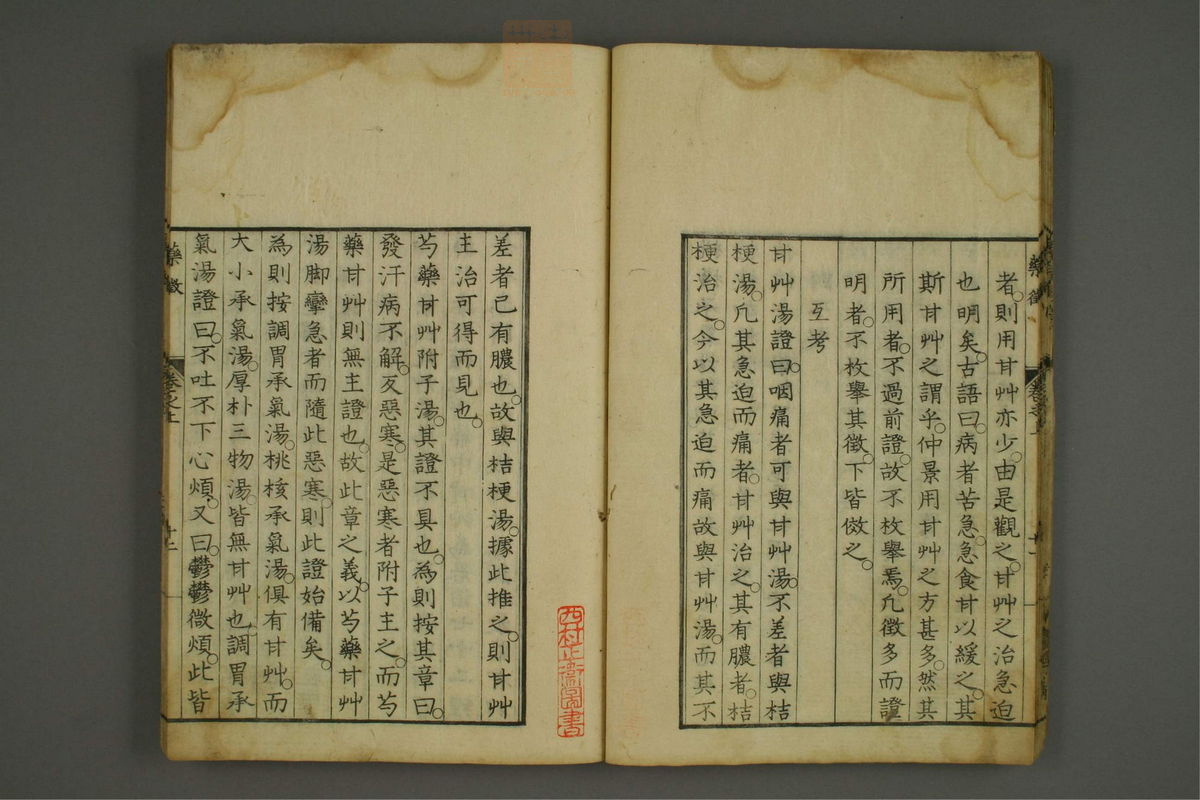 者。則用甘艸亦少。由是觀之。甘艸之治急迫
也明矣。古語曰。病者苦急。急食甘以緩之。其
斯甘艸之謂乎。仲景用甘艸之方甚多。然其
所用者。不過前證。故不枚舉焉。凢徵多而證
明者。不枚舉其徵。下皆傚之。
互考
甘艸湯證曰。咽痛者可與甘艸湯。不差者與桔
梗湯。凢其急迫而痛者。甘艸治之。其有膿者。桔
梗治之。今以其急迫而痛故與甘艸湯。而其不
差者已有膿也。故與桔梗湯。據此推之。則甘艸
主治可得而見也。
芍藥甘艸附子湯。其證不具也。為則按其章曰。
發汗病不解。反惡寒。是惡寒者附子主之。而芍
藥甘艸則無主證也。故此章之義。以芍藥甘艸
湯脚攣急者而隨此惡寒。則此證始備矣。
為則按調胃承氣湯。桃核承氣湯。俱有甘艸。而
大小承氣湯。厚朴三物湯。皆無甘艸也。調胃承
氣湯證曰。不吐不下心煩。又曰。鬱鬱微煩。此皆
藥徵
卷之上
十一
藥徵
卷之上
十二